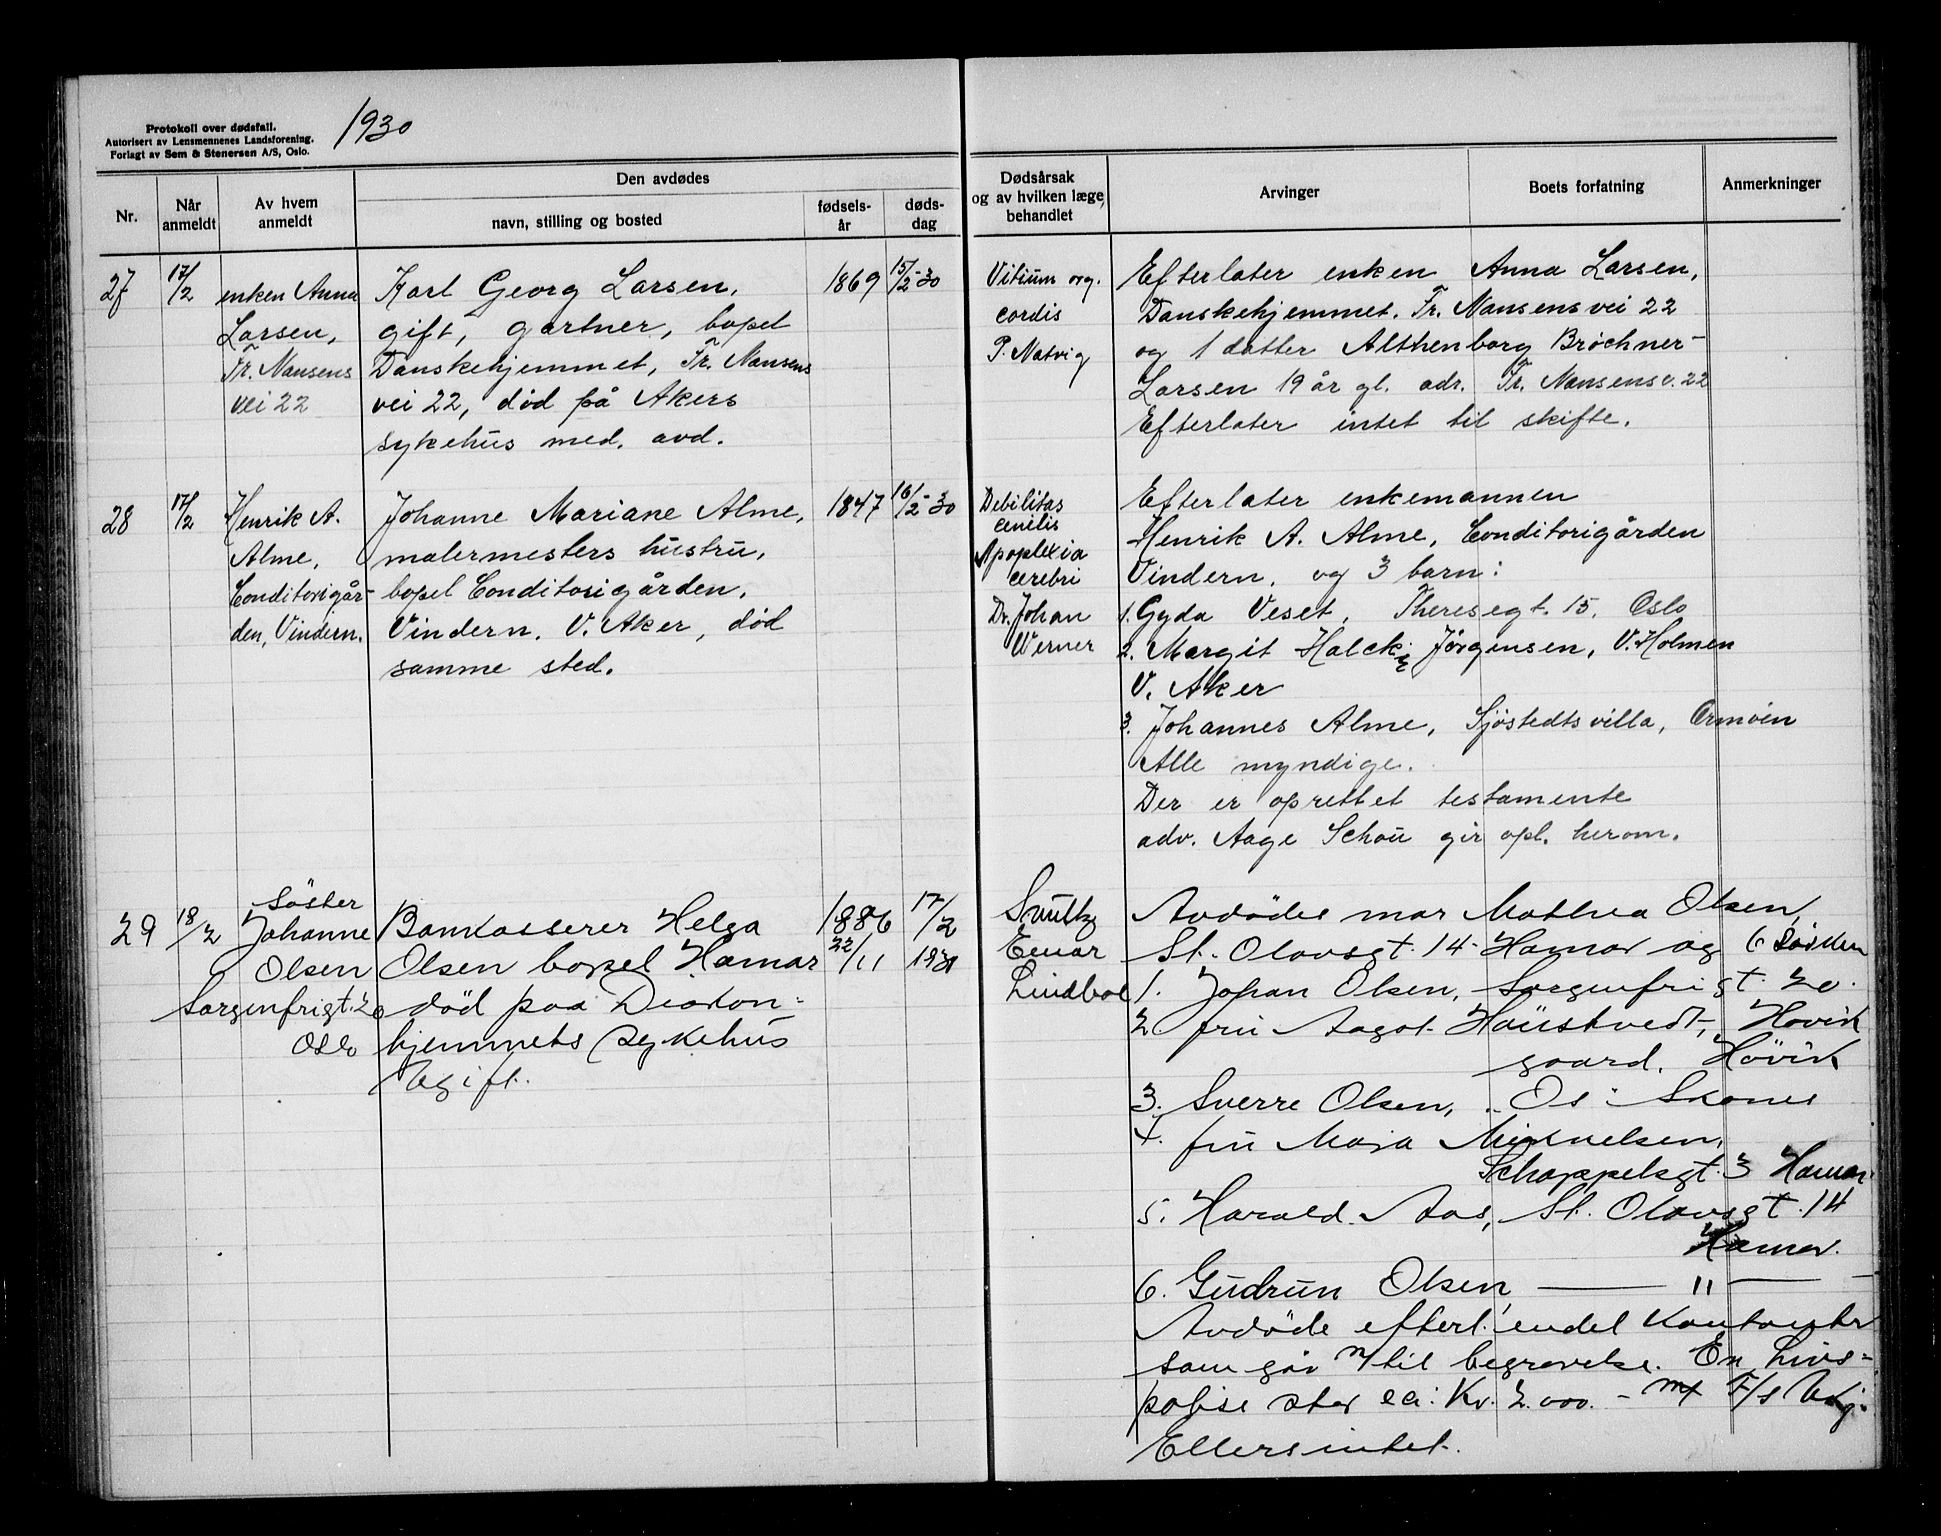 Protokoll over dødsfall.
Autorisert av Lensmennenes Landsforening.
Forlagt av Sem & Stenersen A/S, Oslo.
1930
Nr.
Når
anmeldt
Av hvem
anmeldt
Den avdødes
navn, stilling og bosted
fødsels-
år
døds-
dag
Dødsårsak
og av hvilken læge
behandlet
Arvinger
Boets forfatning
Anmerkninger
27
17/2
enken Anna
Larsen,
Fr. Nansens
vei 22
Karl Georg Larsen,
gift, gartner, bopel
Danskehjemmet, Fr. Nansens
vei 22, død på Akers
sykehus med. avd.
1869
15/2-30
Vitium org.
cordis
P. Natvig
Efterlater enken Anna Larsen,
Danskehjemmet. Fr. Nansens vei 22
og 1 datter Althenborg Bröchner-
Larsen 19 år gl. adr. Fr. Nansens v. 22
Efterlater intet til skifte.
28
17/2
Henrik A.
Alme,
Conditorigår-
den, Vindern.
Johanne Mariane Alme,
malermesters hustru,
bopel Conditorigården,
Vindern. V. Aker, död
samme sted.
1847
16/2-30
Debilitas
cenilis
Apoplexia
cerebri
Dr. Johan
Werner
Efterlater enkemannen
Henrik A. Alme, Conditorigården
Vindern, og 3 barn:
1. Gyda Veset, Theresegt. 15. Oslo
2. Margit Halck Jörgensen, V. Holmen
V. Aker
3. Johannes Alme, Sjöstedts villa, Ormöen
Alle myndige.
Der er oprettet testamente
adv. Aage Schou gir opl. herom.
29
18/2
Söster
Johanne
Olsen
Sorgenfrigt. 20
Oslo
Bankasserer Helga
Olsen bopel Hamar
död paa Diakon-
hjemmets sykehus
Ugift.
1886
22/11
17/2
1930
Einar
Avdödes mor Mathea Olsen,
St. Olavsgt. 14 Hamar og 6 Södsken
1. Johan Olsen, Sorgenfrigt. 20.
2 fru Aagot Haustvedt, Hövik
gaard, Hövik
3. Sverre Olsen, Os
4. fru Maja Mikkelsen,
3 Hamar
5. Harald Aas, St. Olavsgt. 14
Hamar.
6. Gudrun Olsen — " —
Avdöde efterl. endel kontanter
som går til begravelse. En Livs-
polise stor ca: Kr. 2.000.-
Ellers intet.